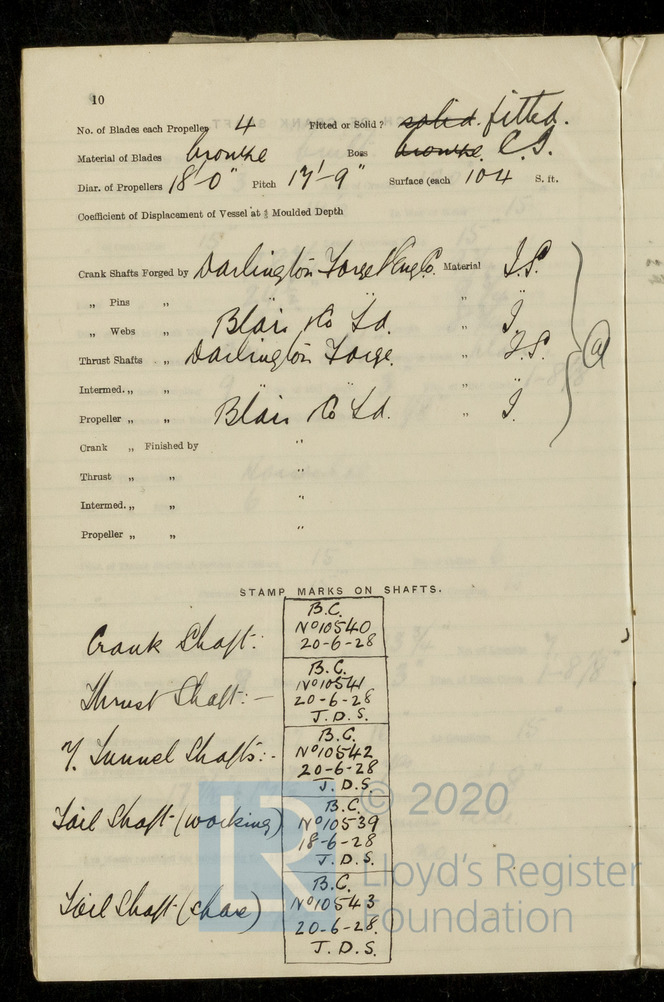 10
No. of Blades each Propeller 4 Fitted or Solid? solid. fitted.
Material of Blades bronze Boss bronze. C.I.
Diar. of Propellers 18'-0" Pitch 17'-9" Surface (each 104 S. ft.
Coefficient of Displacement of Vessel at ¾ Moulded Depth
Crank Shafts Forged by Darlington Forge Material I.S.
„ Pins „ „ „ „
„ Webs „ Blair & Co Ld. „ I.
Thrust Shafts „ Darlington Forge. „ I.S.
Intermed. „ „ „ „ „
Propeller „ „ Blair & Co Ld. „ I.
Crank „ Finished by „
Thrust „ „ „
Intermed. „ „ „
Propeller „ „ „
STAMP MARKS ON SHAFTS.
Crank Shaft:
B.C.
No 10540
20-6-28
Thrust Shaft:-
B.C.
No 10541
20-6-28
J.D.S.
7. Tunnel Shafts:-
B.C.
No 10542
20-6-28
J.D.S.
Tail Shaft-(working)
B.C.
No 10539
18-6-28
J.D.S.
Tail Shaft-(spare)
B.C.
No 10543
20-6-28.
J.D.S.
© 2020
Lloyd's Register
Foundation
LR